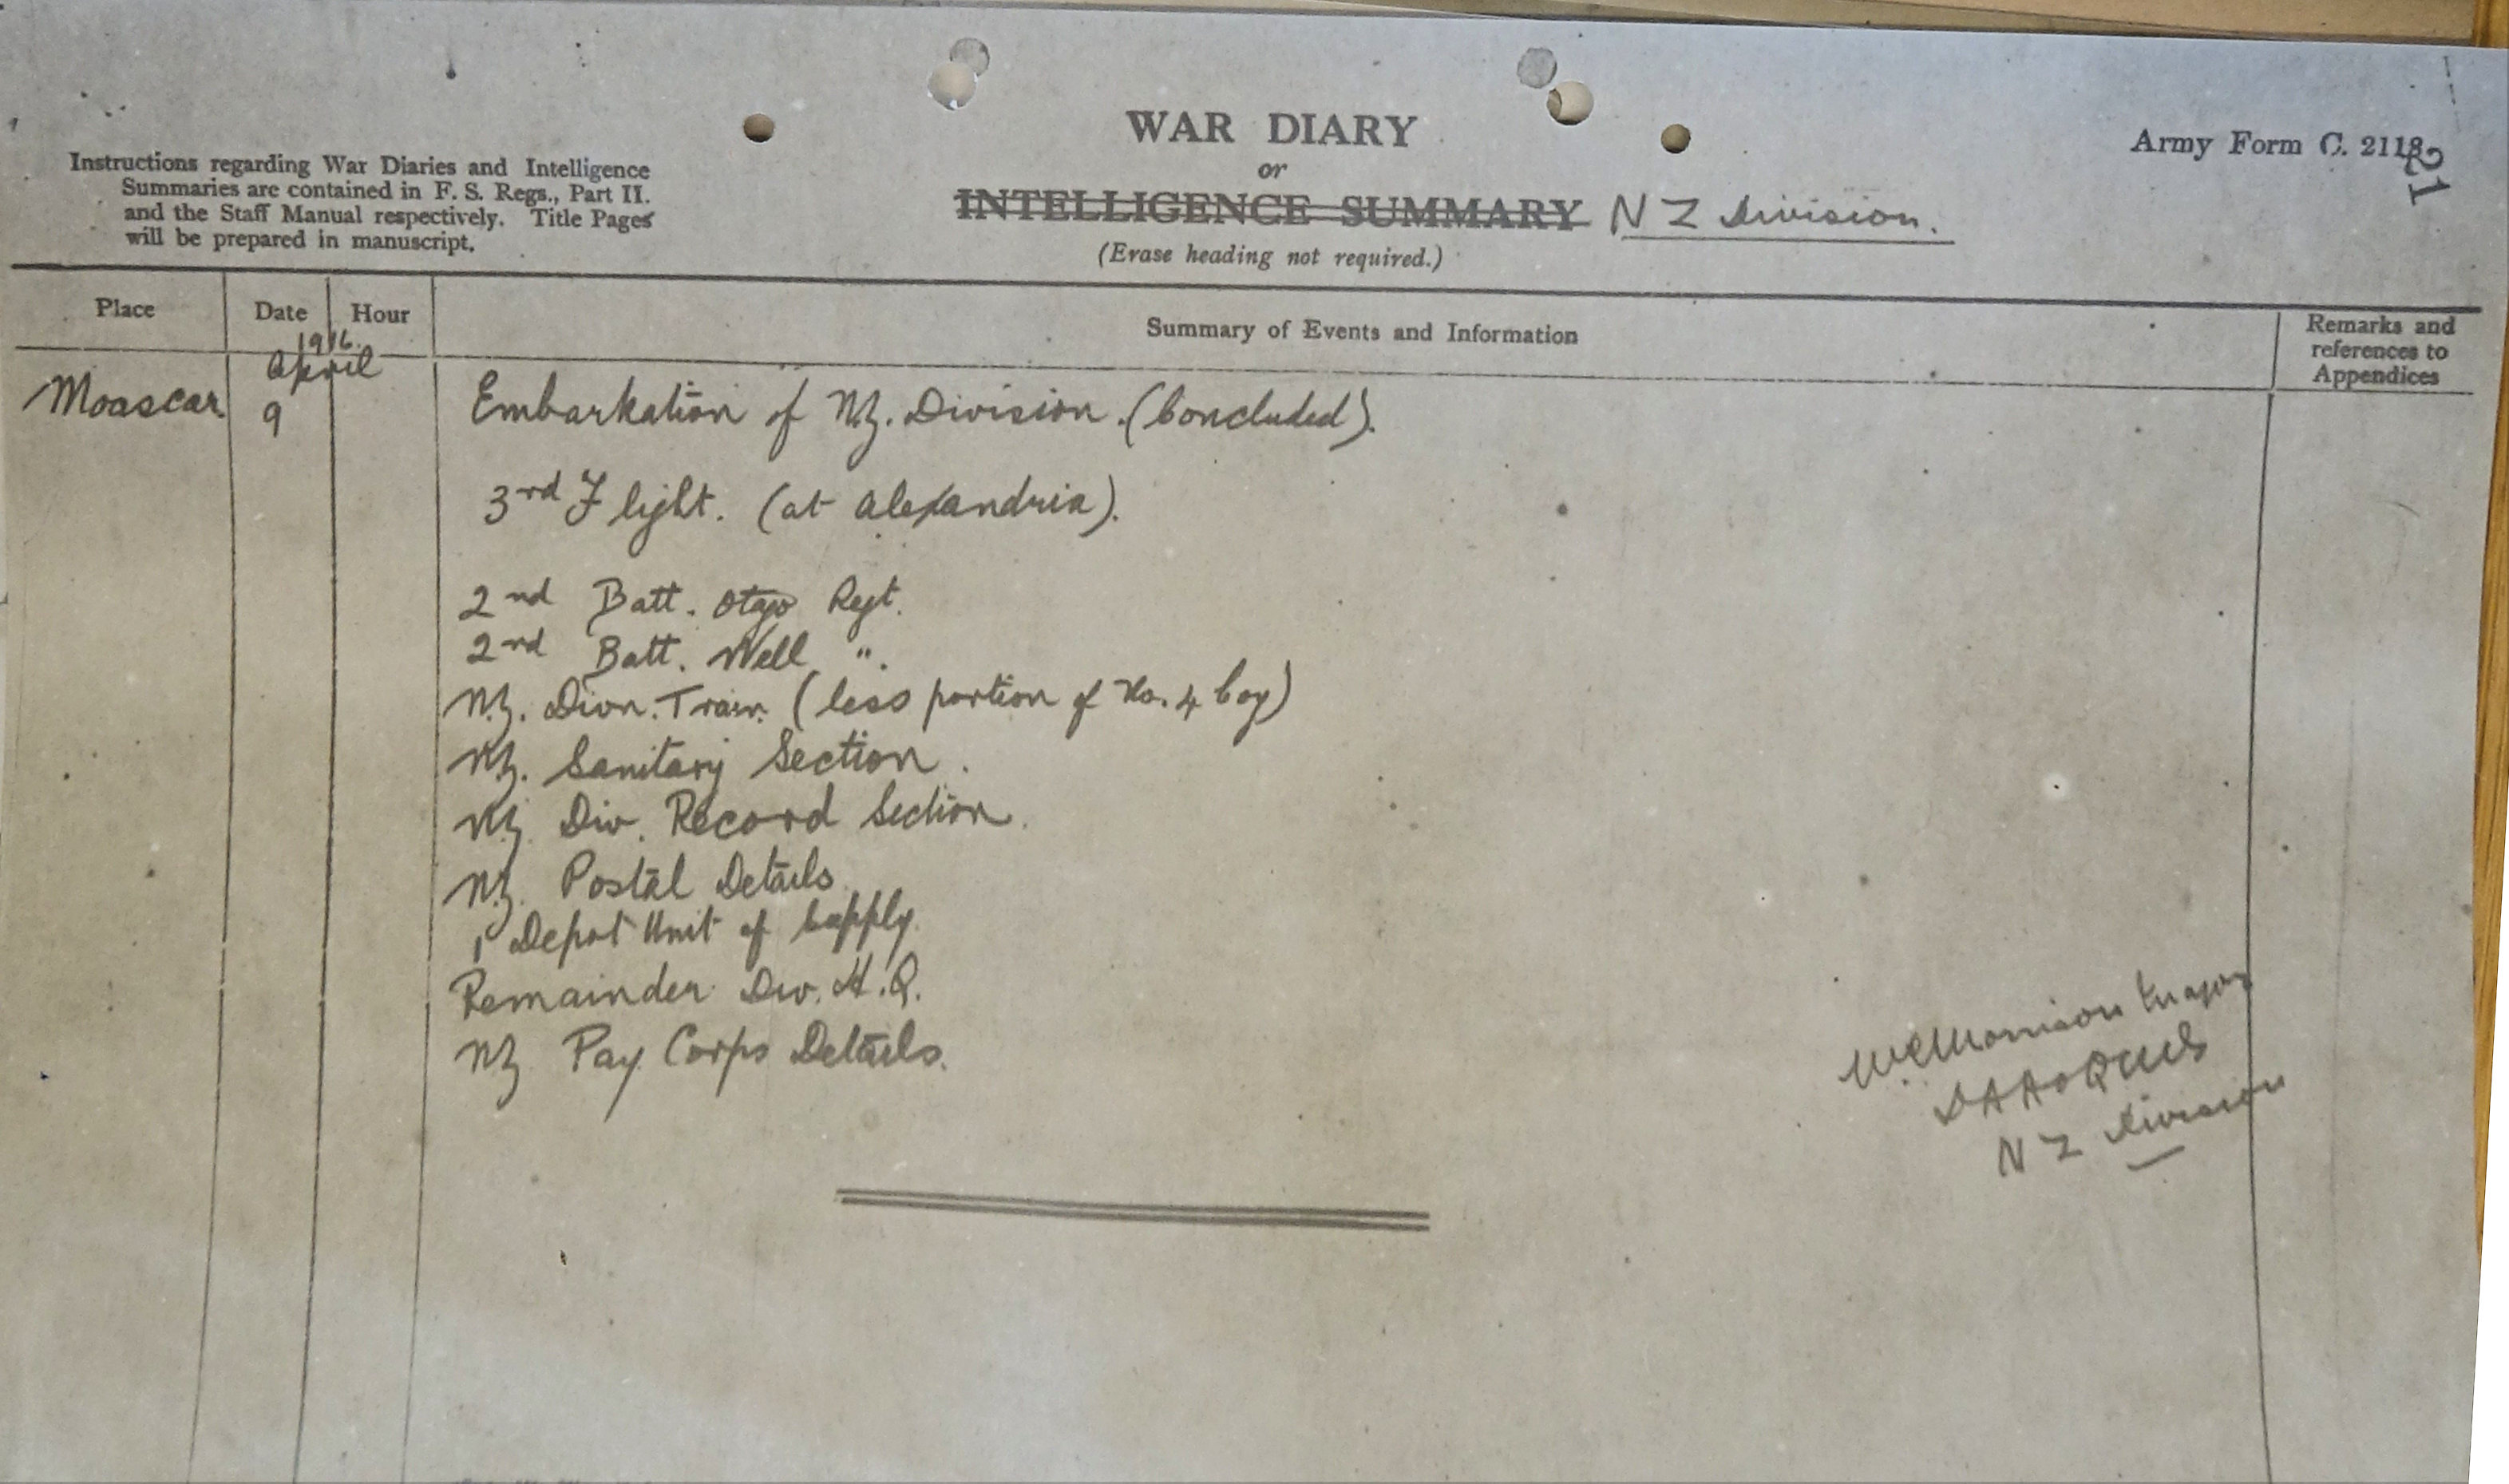 WAR DIARY
or
INTELLIGENCE SUMMARY N Z Division.
(Erase heading not required.)
Army Form C. 2118.
21
Instructions regarding War Diaries and Intelligence
Summaries are contained in F. S. Regs., Part II.
and the Staff Manual respectively. Title Pages
will be prepared in manuscript.
Place Date Hour Summary of Events and Information Remarks and
references to
Appendices
1916.
April
Moascar 9 Embarkation of N.Z. Division. (Concluded).
3rd Flight. (at Alexandria).
2nd Batt. Otago Regt.
2nd Batt. Well ".
N.Z. Divn. Train. (less portion of No. 4 Coy)
N.Z. Sanitary Section.
N.Z. Div. Record Section.
N.Z. Postal Details
1 Depot Unit of Supply.
Remainder Div. H.Q.
NZ Pay Corps Details.
Morrison Major
DAA&QMG
N Z Division